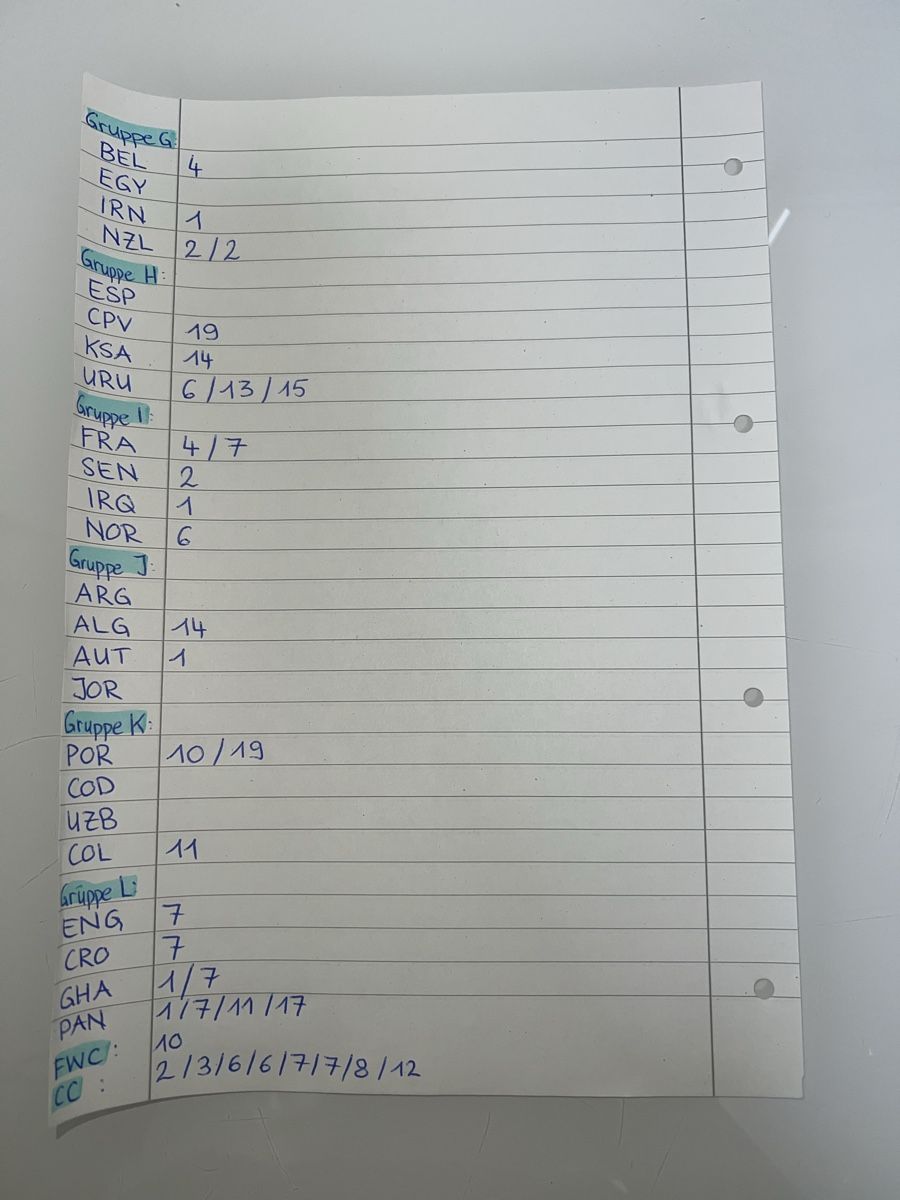 Gruppe G:
BEL 4
EGY
IRN 1
NZL 2/2
Gruppe H:
ESP
CPV 19
KSA 14
URU 6/13/15
Gruppe I:
FRA 4/7
SEN 2
IRQ 1
NOR 6
Gruppe J:
ARG
ALG 14
AUT 1
JOR
Gruppe K:
POR 10/19
COD
UZB
COL 11
Gruppe L:
ENG 7
CRO 7
GHA 1/7
PAN 1/7/11/17
FWC: 10
CC: 2/3/6/6/7/7/8/12